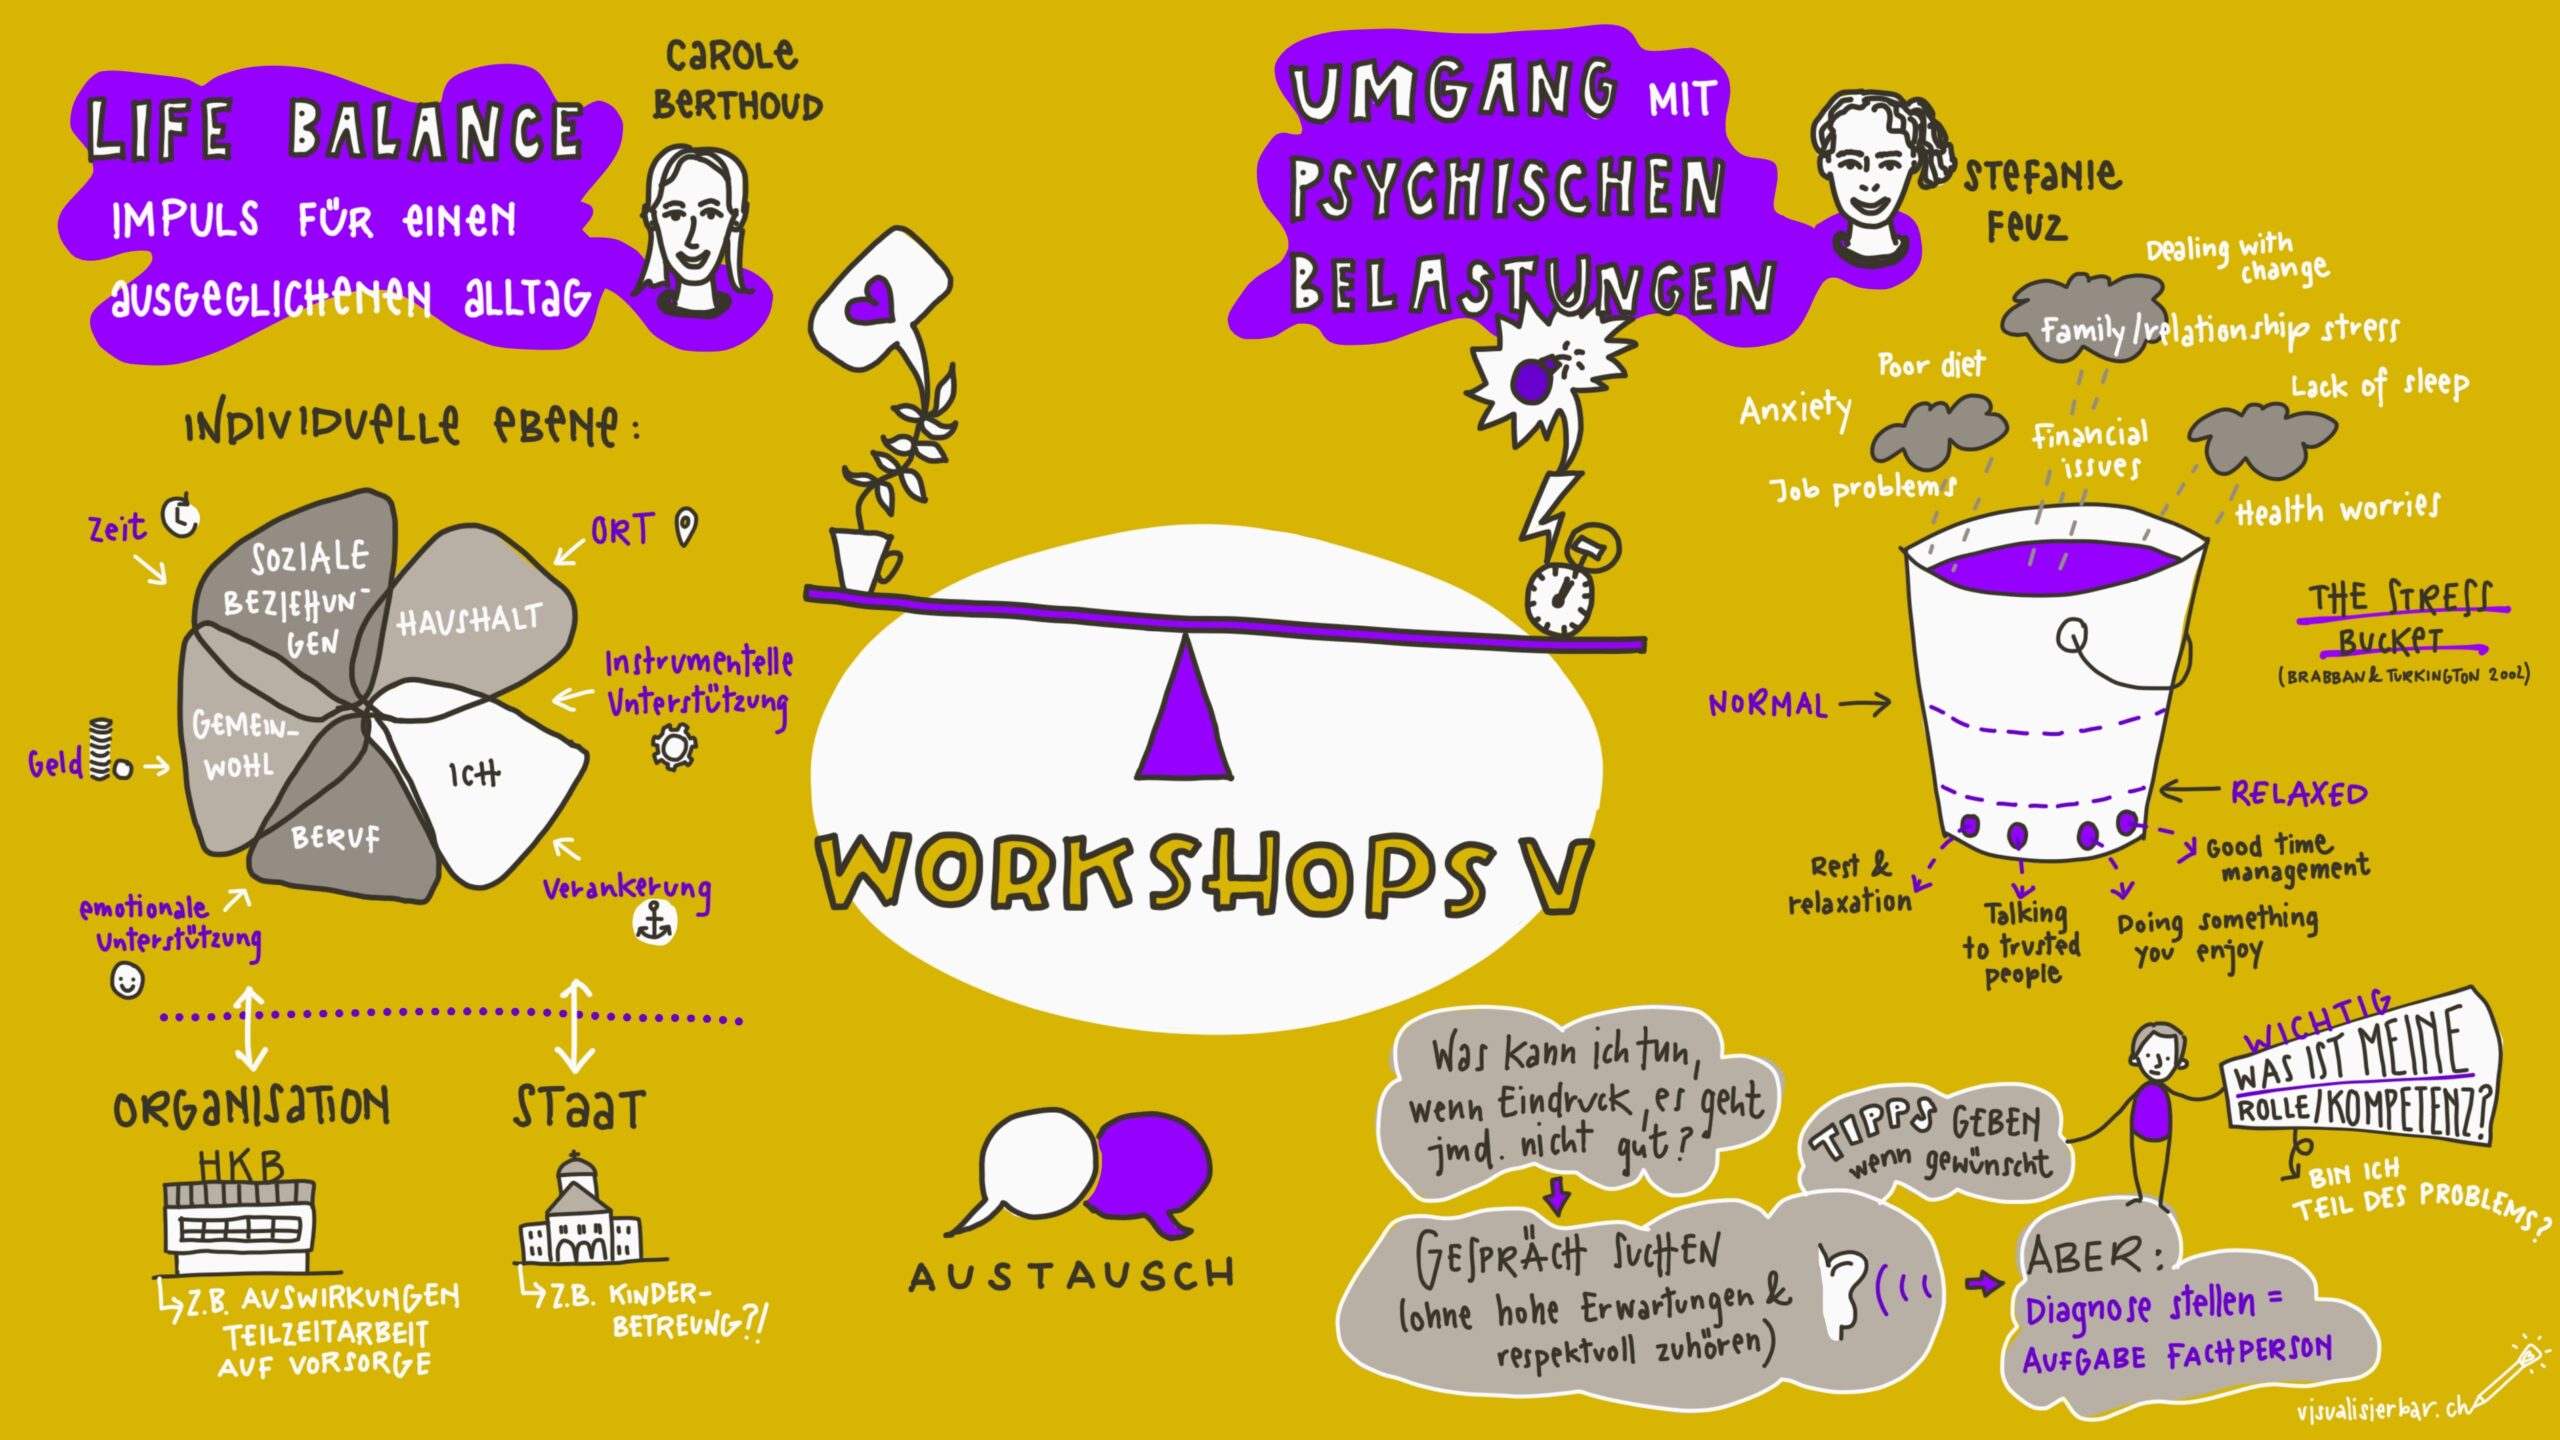 LIFE BALANCE
IMPULS FÜR EINEN
AUSGEGLICHENEN ALLTAG
CAROLE
BERTHOUD
INDIVIDUELLE EBENE:
Zeit
ORT
SOZIALE
BEZIEHUN-
GEN
HAUSHALT
Instrumentelle
Unterstützung
GEMEIN-
WOHL
ICH
Geld
BERUF
Verankerung
emotionale
Unterstützung
ORGANISATION
HKB
Z.B. AUSWIRKUNGEN
TEILZEITARBEIT
AUF VORSORGE
STAAT
Z.B. KINDER-
BETREUNG?!
WORKSHOPS V
AUSTAUSCH
UMGANG MIT
PSYCHISCHEN
BELASTUNGEN
STEFANIE
FEUZ
Dealing with
change
Family/relationship stress
Poor diet
Lack of sleep
Anxiety
Financial
issues
Job problems
Health worries
THE STRESS
BUCKET
(BRABBAN & TURKINGTON 2002)
NORMAL
RELAXED
Rest &
relaxation
Talking
to trusted
people
Doing something
you enjoy
Good time
management
Was kann ich tun,
wenn Eindruck, es geht
jmd. nicht gut?
GESPRÄCH SUCHEN
(ohne hohe Erwartungen &
respektvoll zuhören)
TIPPS GEBEN
wenn gewünscht
WICHTIG
WAS IST MEINE
ROLLE/KOMPETENZ?
BIN ICH
TEIL DES PROBLEMS?
ABER:
Diagnose stellen =
AUFGABE FACHPERSON
visualisierbar.ch